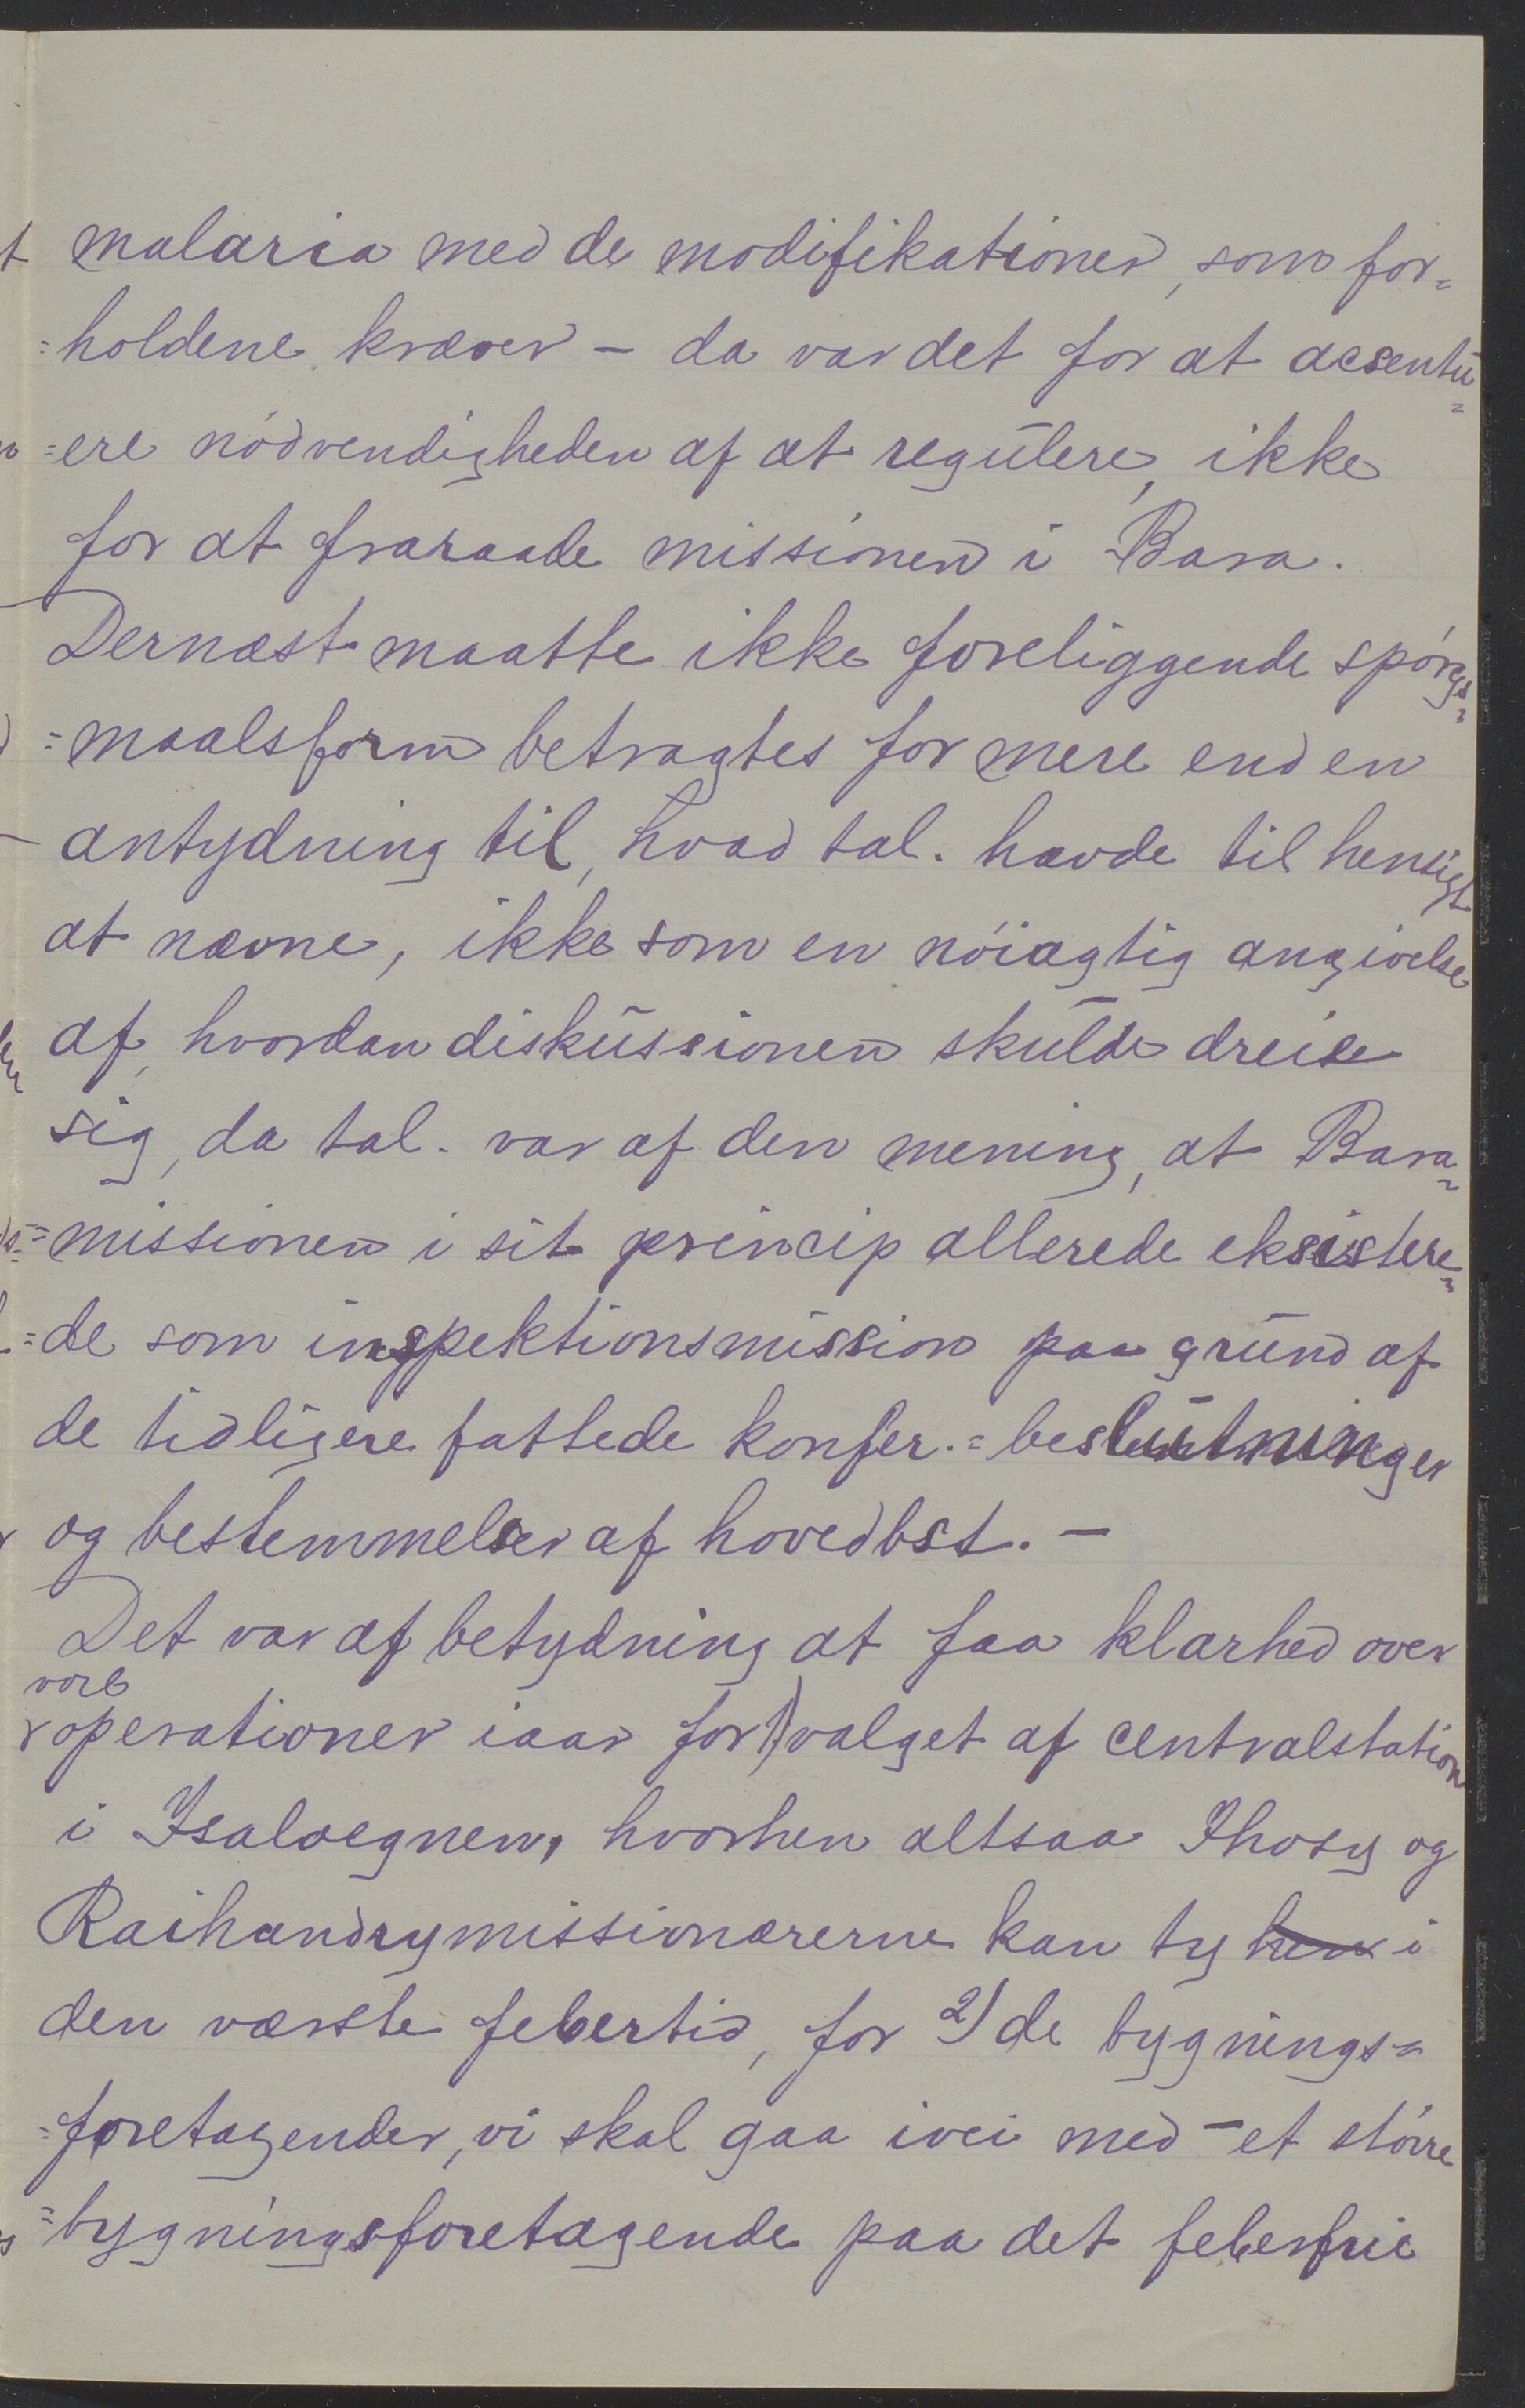 malaria med de modifikationer, som for=
=holdene kræver – da var det for at acsentu=
=ere nödvendigheden af at regulere, ikke
for at fraraade missionen i Bara.
Dernæst maatte ikke foreliggende spörgs=
=maalsform betragtes for mere end en
antydning til, hvad tal. havde til hensigt
at nævne, ikke som en nöiagtig angivelse
af, hvordan diskussionen skulde dreie
sig, da tal. var af den mening, at Bara=
=missionen i sit princip allerede eksistere=
=de som inspektionsmission paa grund af
de tidligere fattede konfer.=beslutninger
og bestemmelser af hovedbst. –
Det var af betydning at faa klarhed over
vore
operationer iaar for 1) valget af centralstation
i Isaloegnen, hvorhen altsaa Ihosy og
Raihandrymissionærerne kan ty hen i
den værste febertid, for 2) de bygnings=
=foretagender, vi skal gaa ivei med – et större
=bygningsforetagende paa det feberfrie